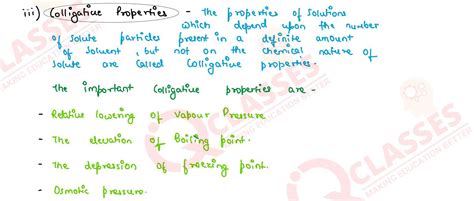 iii) Colligative Properties - The properties of solutions
which depend upon the number
of solute particles present in a definite amount
of solvent, but not on the chemical nature of
solute are called colligative properties.
The important Colligative properties are -
- Relative lowering of vapour Pressure
- The elevation of Boiling point.
- The depression of freezing point.
- Osmotic pressure.
CLASSES
MAKING EDUCATION BETTER
CLASSES
MAKING EDUCATION BETTER
CLASSES
MAKING EDUCATION BETTER